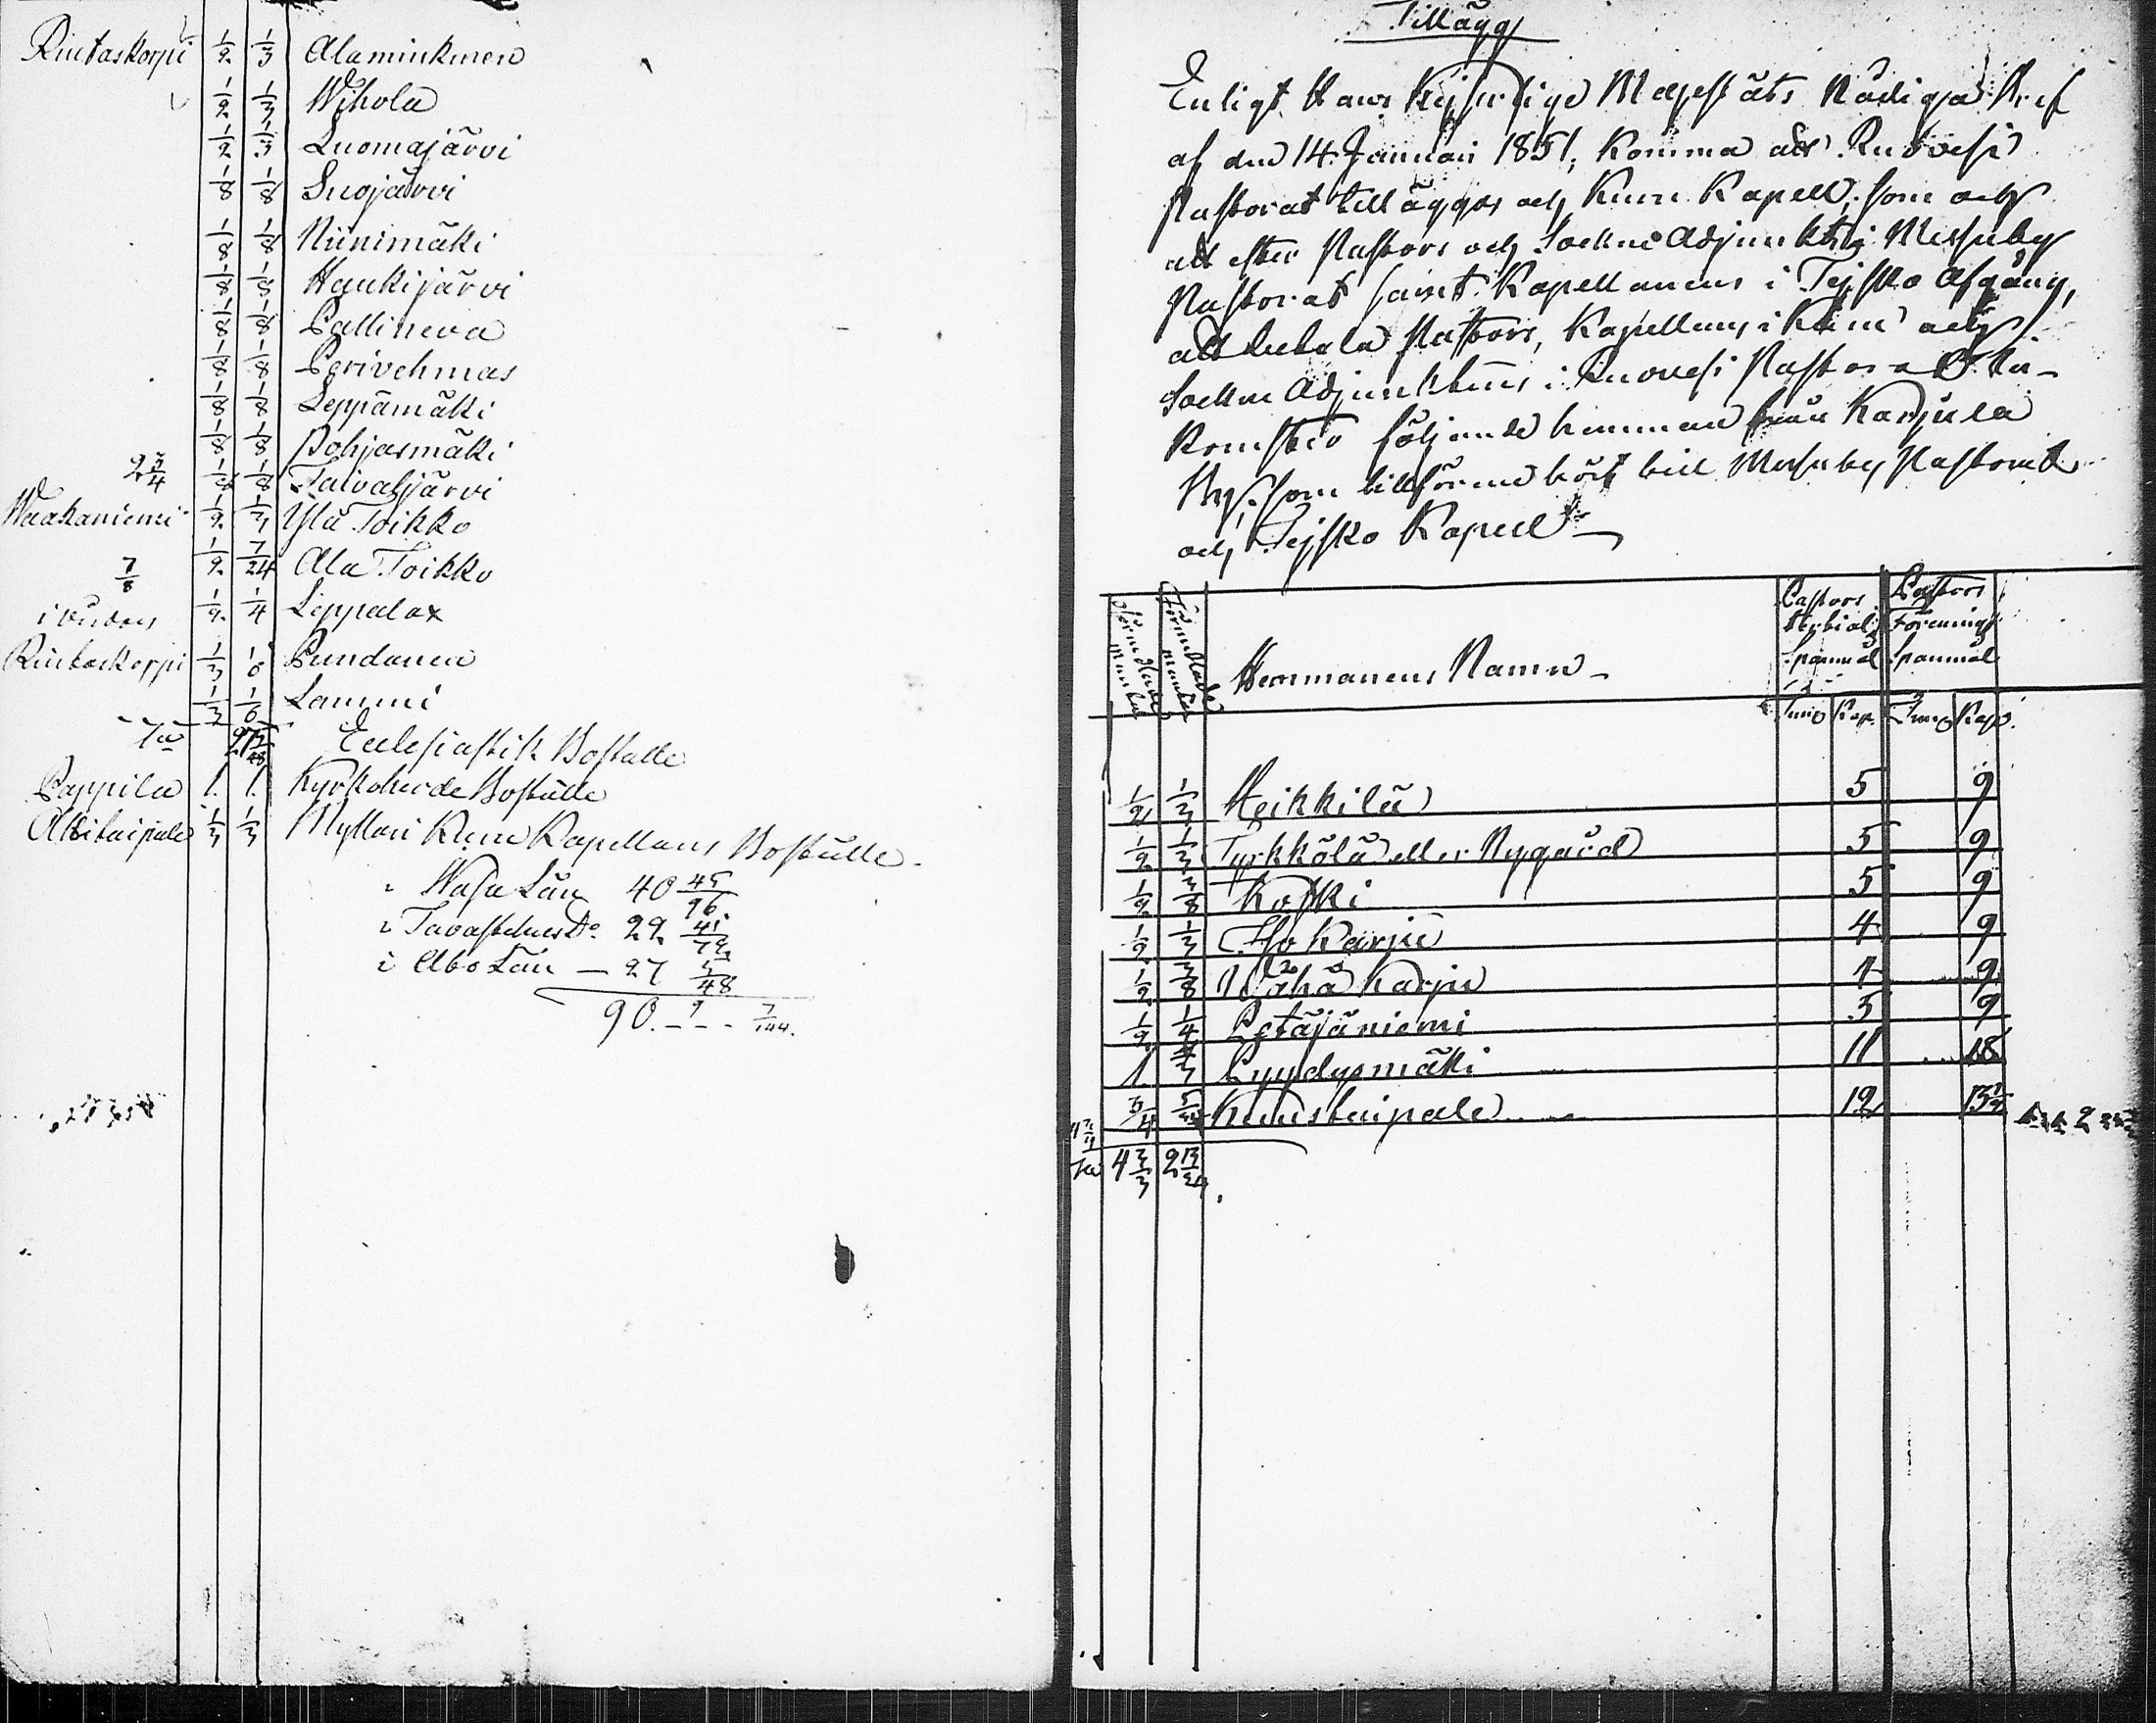 Rintaskorpi 1/2 1/3 Alaminkinen
1/2 1/3 Wihola
1/2 1/3 Luomajärvi
1/8 1/8 Suojärvi
1/8 1/8 Niinimäki
1/8 1/8 Haukijärvi
1/8 1/8 Pallineva
1/8 1/8 Perivehmas
1/8 1/8 Leppämäki
1/8 1/8 Pohjasmäki
2 3/4 1/8 1/8 Taivaljärvi
Waakaniemi 1/2 1/3 Ylä Toikko
7/8 1/2 7/24 Ala Toikko
1/2 1/4 Leppälax
Rintaskorpi 1/3 1/6 Pundanen
1/3 1/6 Lammi
Ecclesiastik Boställe
Pappila 1. 1. Kyrkoherde Boställe
1/3 1/3 Myllari Kuru Kapellans Boställe
i Wasa Län 40 45/96
i Tavastehus Do 22
i Åbo Län — 27 5/48
90. 7/144.
Tillägg
Enligt Hans Kejserlige Majestäts Nådiga Bref
af den 14. Januari 1851, komma att Ruovesi
Pastorat tilläggas och Kuru Kapell, som och
att efter Pastors och Sockne Adjunkts i Messuby
Pastorat samt Kapellanens i Tejsko Afgång,
att betala Pastors, Kapellans i Kuru och
Sockne Adjunktens i Ruovesi Pastorat In-
komster följande hemman från Karjula
By, som tillförene hört till Messuby Pastorat
och Tejsko Kapell —
Hemmanens Namn —
Pastors
Spannmål
Pastors
Förenings
Spannmål
Tun Kap. Tun Kapp.
1/2 1/3 Heikkilä 5 9
1/2 1/3 Tyrkkölä eller Nygård 5 9
1/2 3/8 Koski 5 9
1/2 1/3 Iso Karju 4 9
1/2 3/8 Wähä Karju 4 9
1/2 1/4 Petäjäniemi 5 9
1 Pyydysmäki 11 18
3/4 Kuustaipale 12 13 1/2